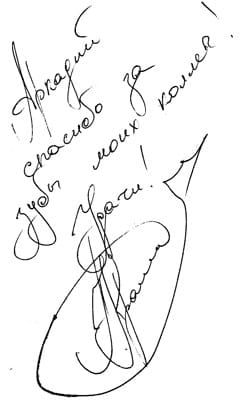 Аркадий
спасибо за
зубы моих коллег!
Удачи!